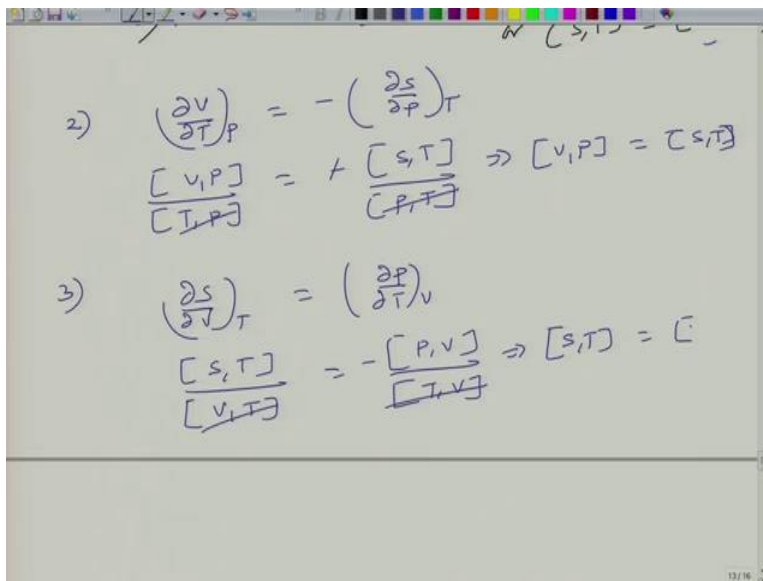 or [S,T] = [
2) (∂V/∂T)_P = - (∂S/∂P)_T
[V,P]/[T,P] = + [S,T]/[P,T] ⇒ [V,P] = [S,T]
3) (∂S/∂V)_T = (∂P/∂T)_V
[S,T]/[V,T] = -[P,V]/[T,V] ⇒ [S,T] = [
13/16